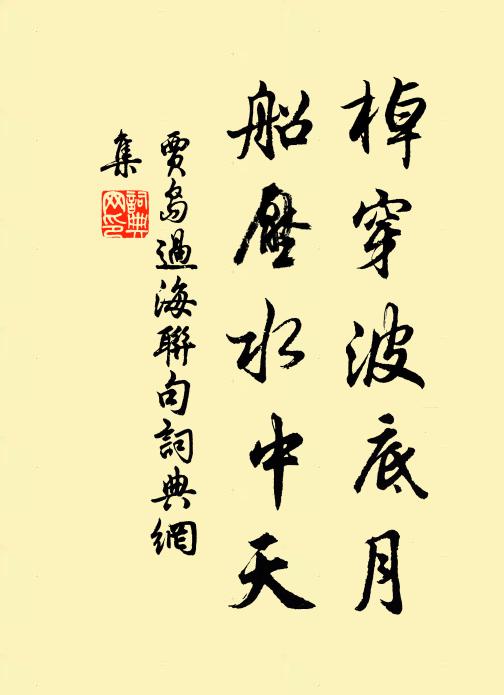 棹穿波底月
船壓水中天
賈島過海聯句詞典網
集
詞典
网印